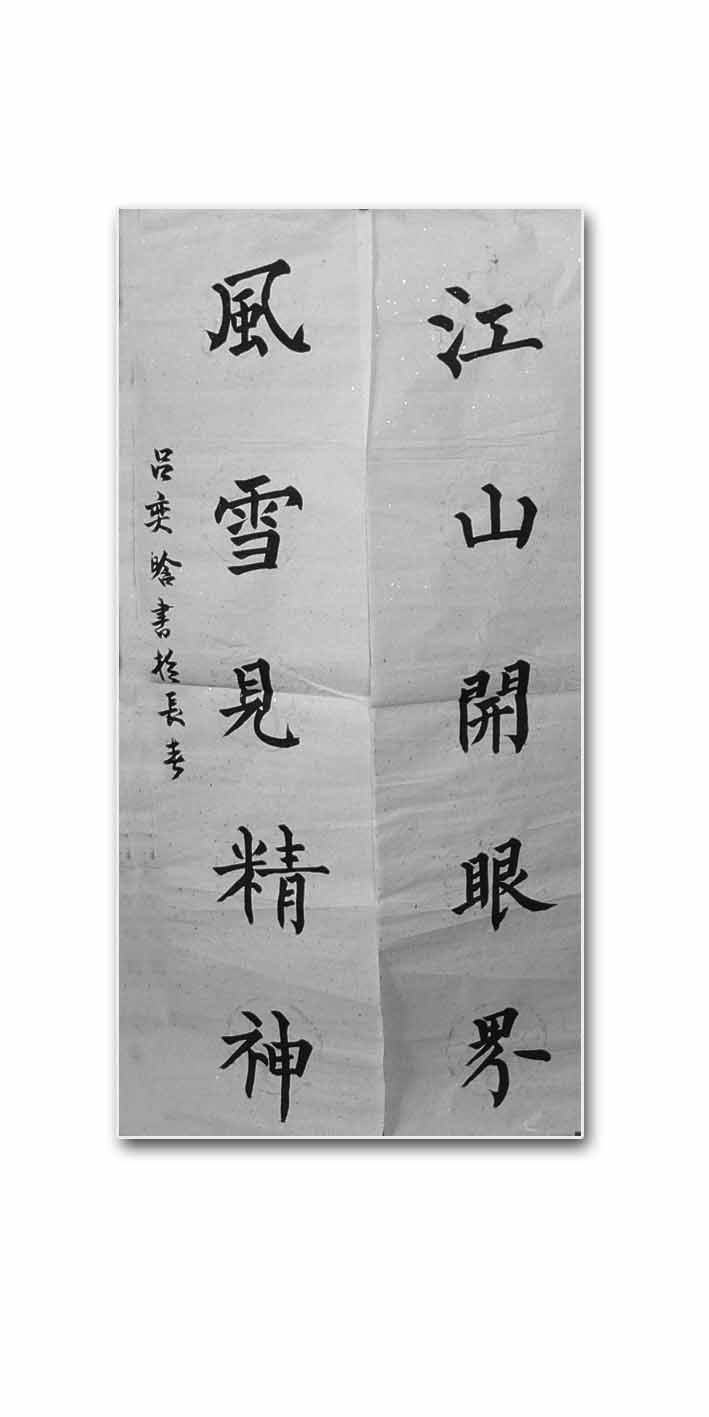 江山開眼界
風雪見精神
吕奕晗書於長春